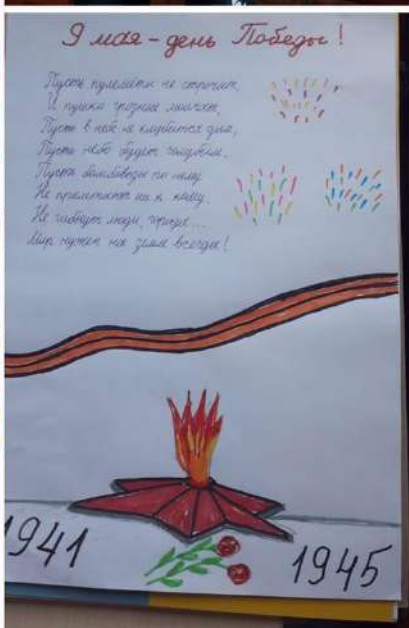 9 мая – день Победы!
Пусть пулемёты не строчат,
И пушки грозные молчат,
Пусть в небе не клубится дым,
Пусть небо будет голубым.
Пусть бомбовозы по нему
Не прилетают ни к кому,
Не гибнут люди, города...
Мир нужен на земле всегда!
1941
1945